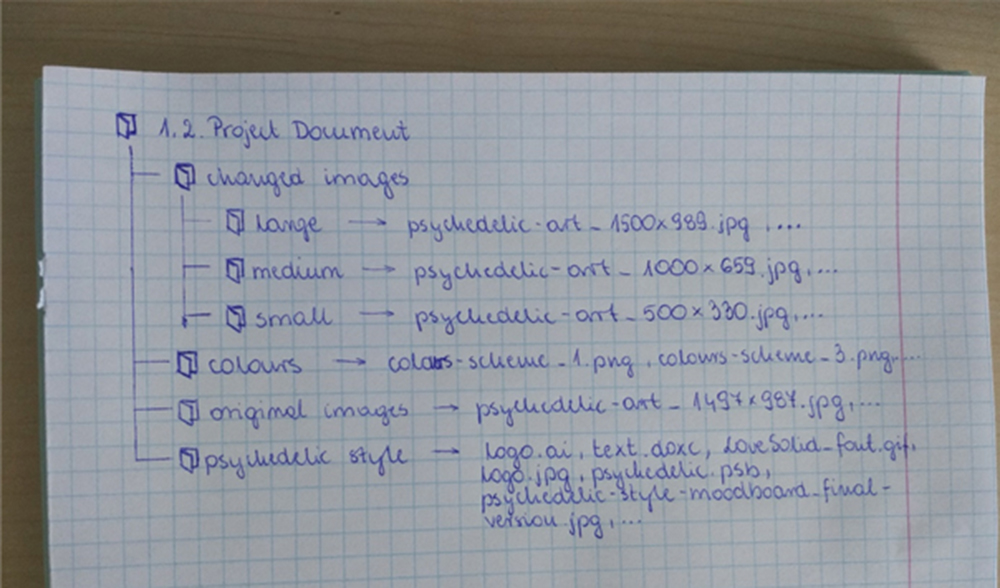 1.2. Project Document
changed images
large → psychedelic-art_1500x989.jpg, ....
medium → psychedelic-art_1000x659.jpg, ...
small → psychedelic-art_500x330.jpg, ...
colours → colours-scheme_1.png, colours-scheme_3.png, ...
original images → psychedelic-art_1497x987.jpg, ...
psychedelic style → logo.ai, text.doxc, LoveSolid_font.gif,
logo.jpg, psychedelic.psb,
psychedelic-style-moodboard_final-
version.jpg, ...